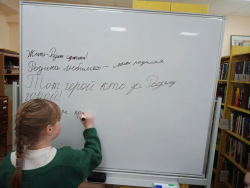 Жить - Родине служить!
Родина любимая - мать родимая
Тот герой кто за Родину
горой!